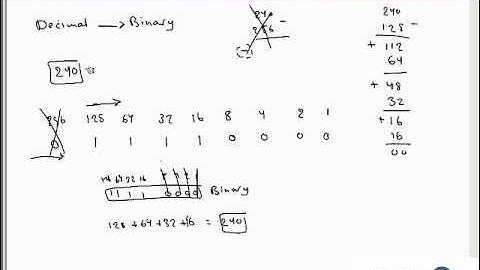 Decimal → Binary
240
256 128 64 32 16 8 4 2 1
0 1 1 1 1 0 0 0 0
128 64 32 16
1 1 1 1 0 0 0 0 Binary
128 + 64 + 32 + 16 = 240
240
256 -
(-)
240
128 -
+ 112
64
+ 48
32
+ 16
16
00